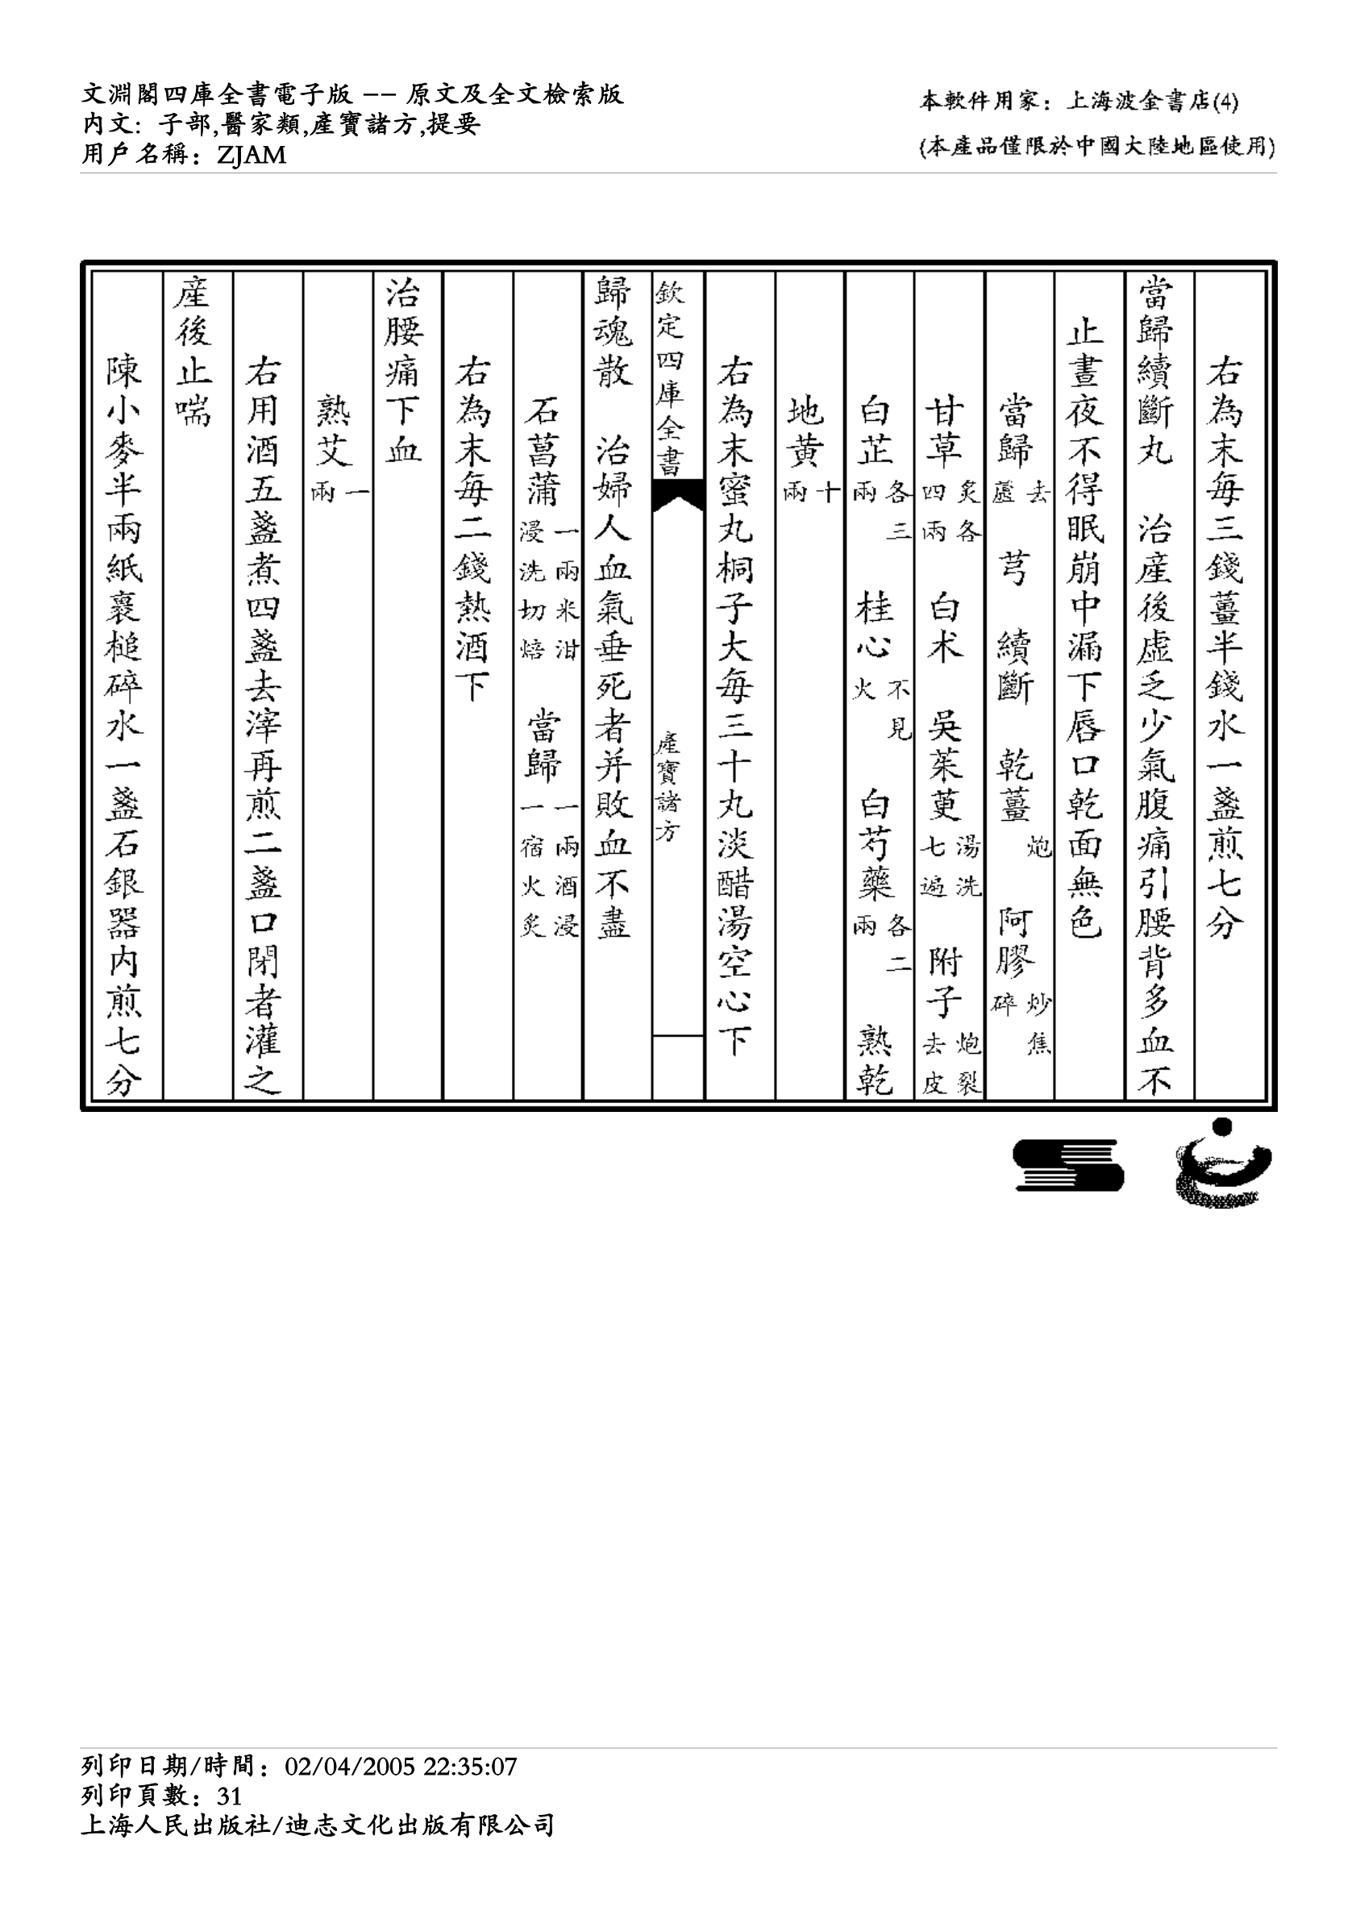 文淵閣四庫全書電子版 -- 原文及全文檢索版
内文: 子部,醫家類,產寶諸方,提要
用戶名稱: ZJAM
本軟件用家: 上海波金書店(4)
(本產品僅限於中國大陸地區使用)
右為末每三錢薑半錢水一盞煎七分
當歸續斷丸 治産後虛乏少氣腹痛引腰背多血不
止晝夜不得眠崩中漏下唇口乾面無色
當歸去蘆 芎 續斷 乾薑炮 阿膠炒焦碎
甘草炙各四兩 白术 吳茱萸湯洗七遍 附子炮裂去皮
白芷各三兩 桂心不見火 白芍藥各二兩 熟乾
地黄十兩
右為末蜜丸桐子大每三十丸淡醋湯空心下
欽定四庫全書 產寶諸方
歸魂散 治婦人血氣垂死者并敗血不盡
石菖蒲一兩米泔浸洗切焙 當歸一兩酒浸一宿火炙
右為末每二錢熱酒下
治腰痛下血
熟艾一兩
右用酒五盞煮四盞去滓再煎二盞口閉者灌之
産後止喘
陳小麥半兩紙裹槌碎水一盞石銀器内煎七分
列印日期/時間: 02/04/2005 22:35:07
列印頁數: 31
上海人民出版社/迪志文化出版有限公司